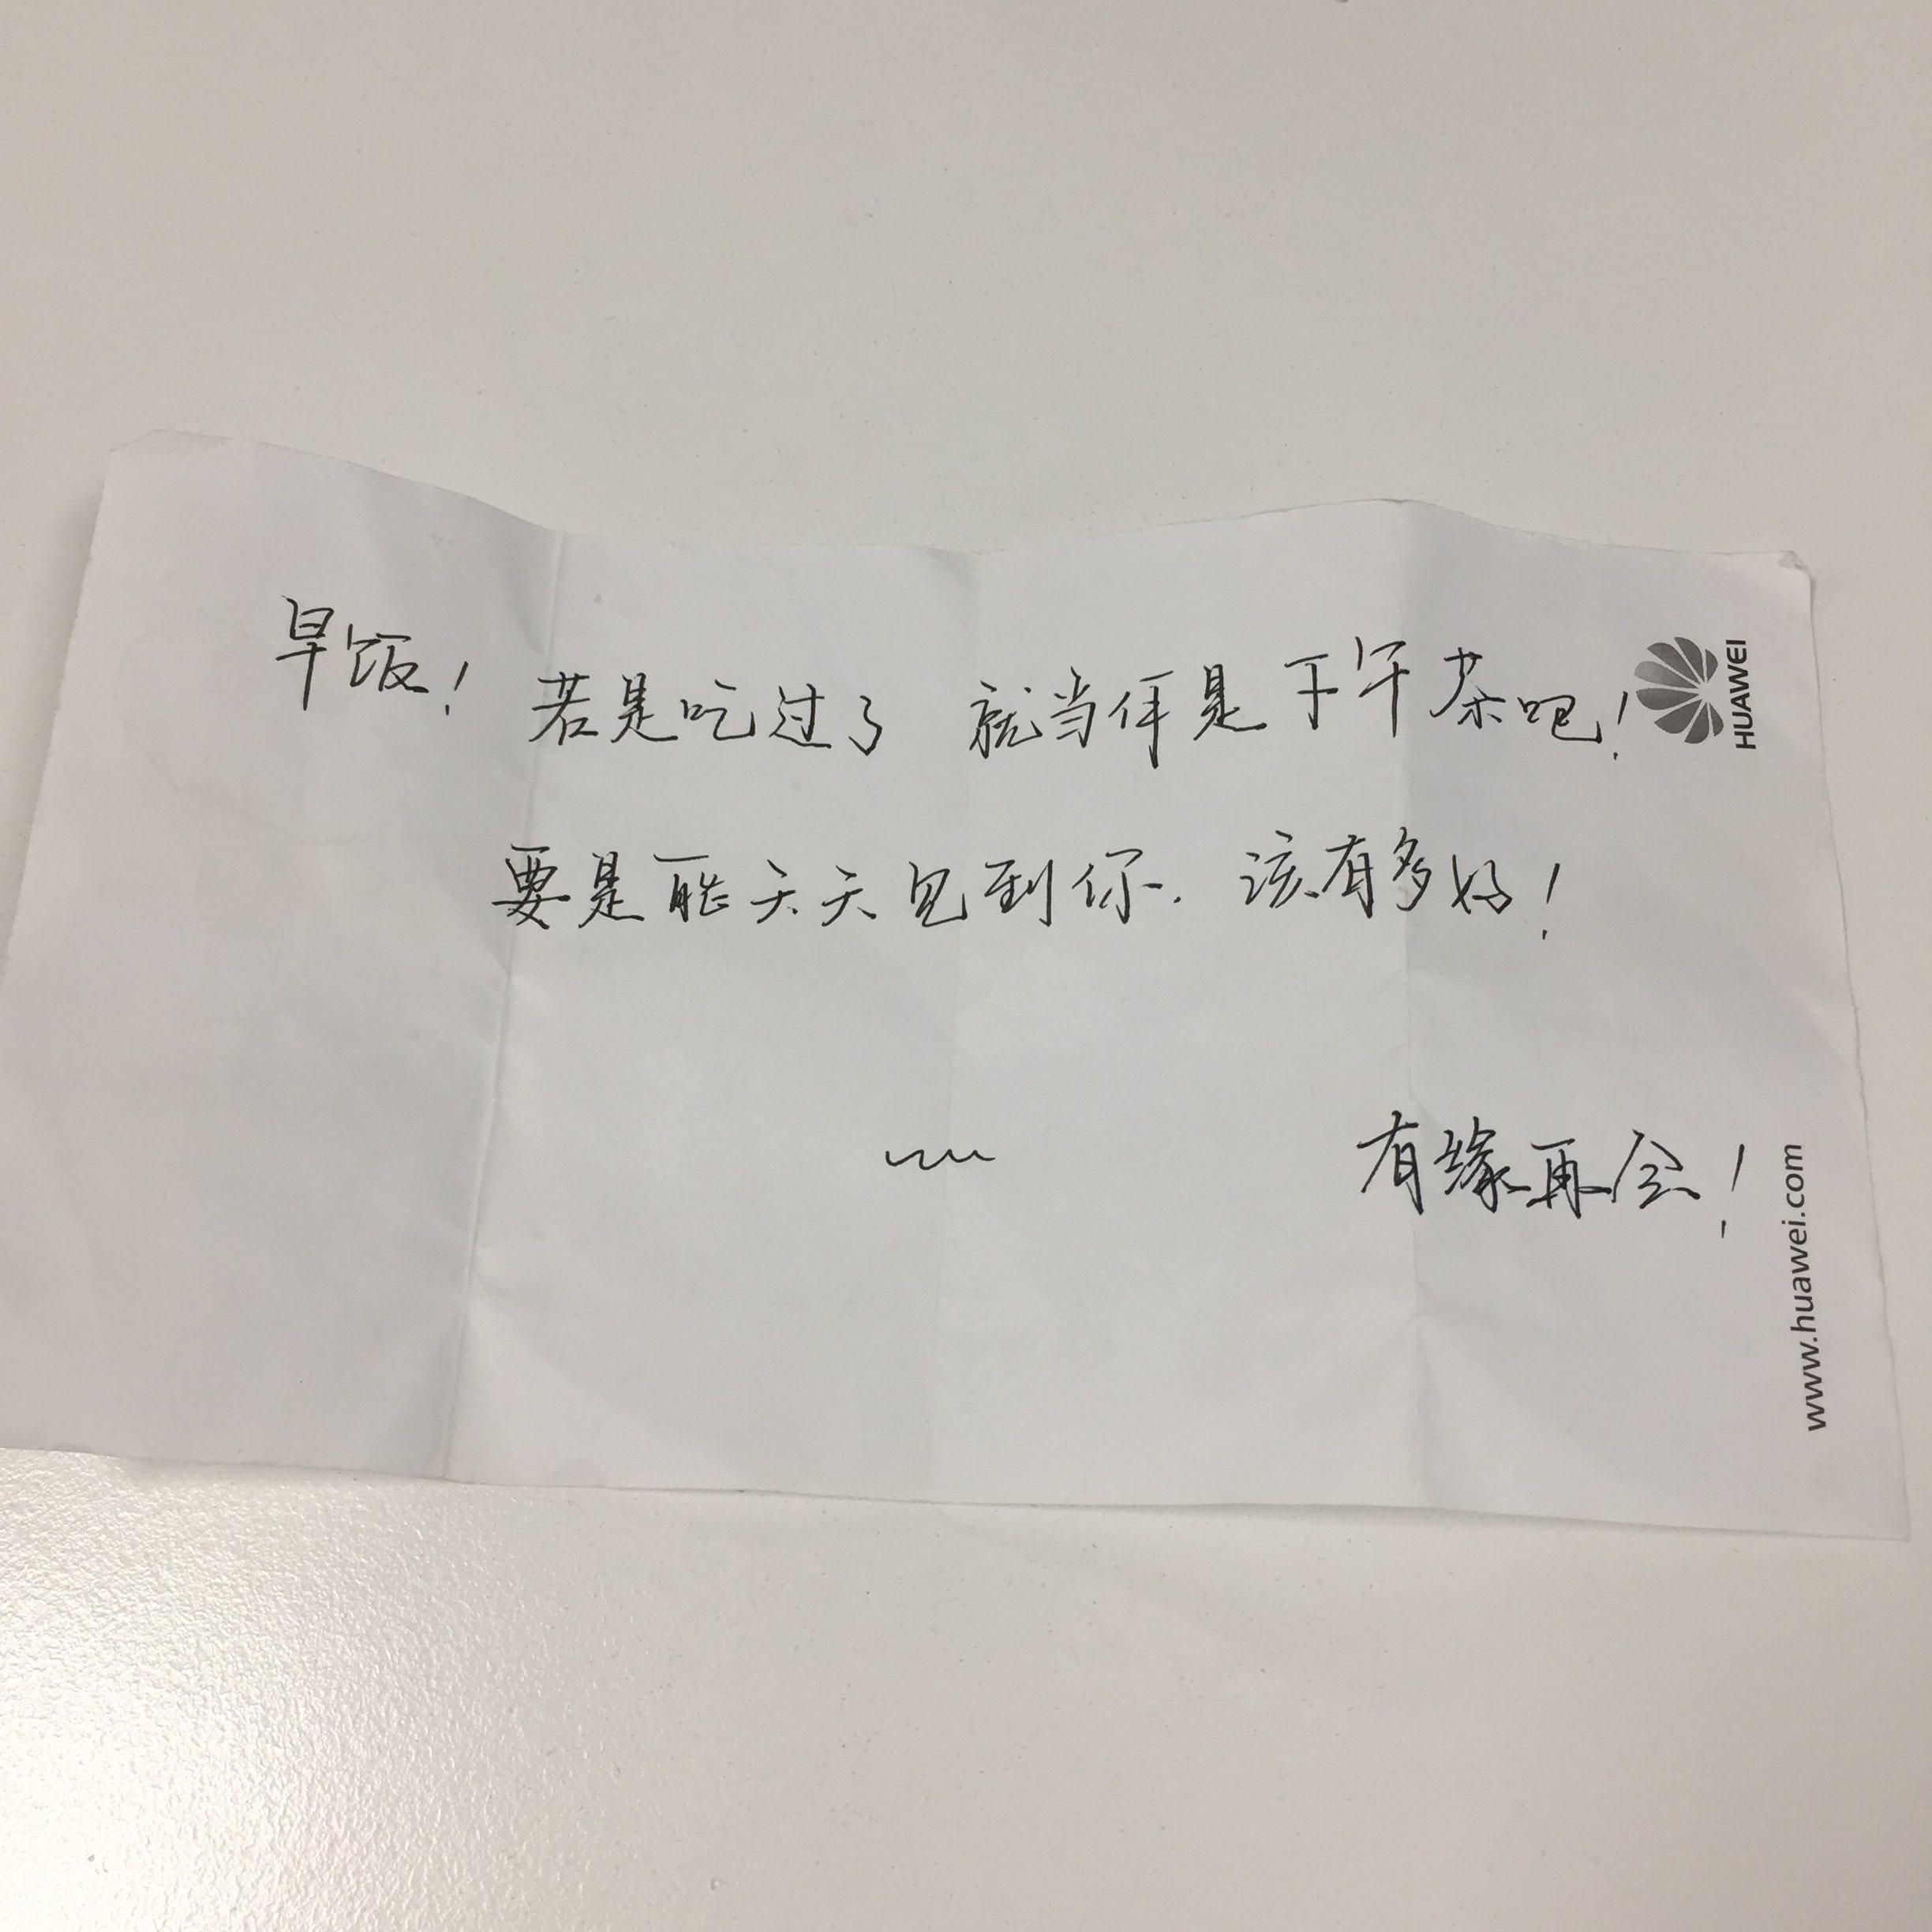 早饭！若是吃过了 就当作是下午茶吧！
要是能天天见到你. 该有多好！
有缘再会！
HUAWEI
www.huawei.com